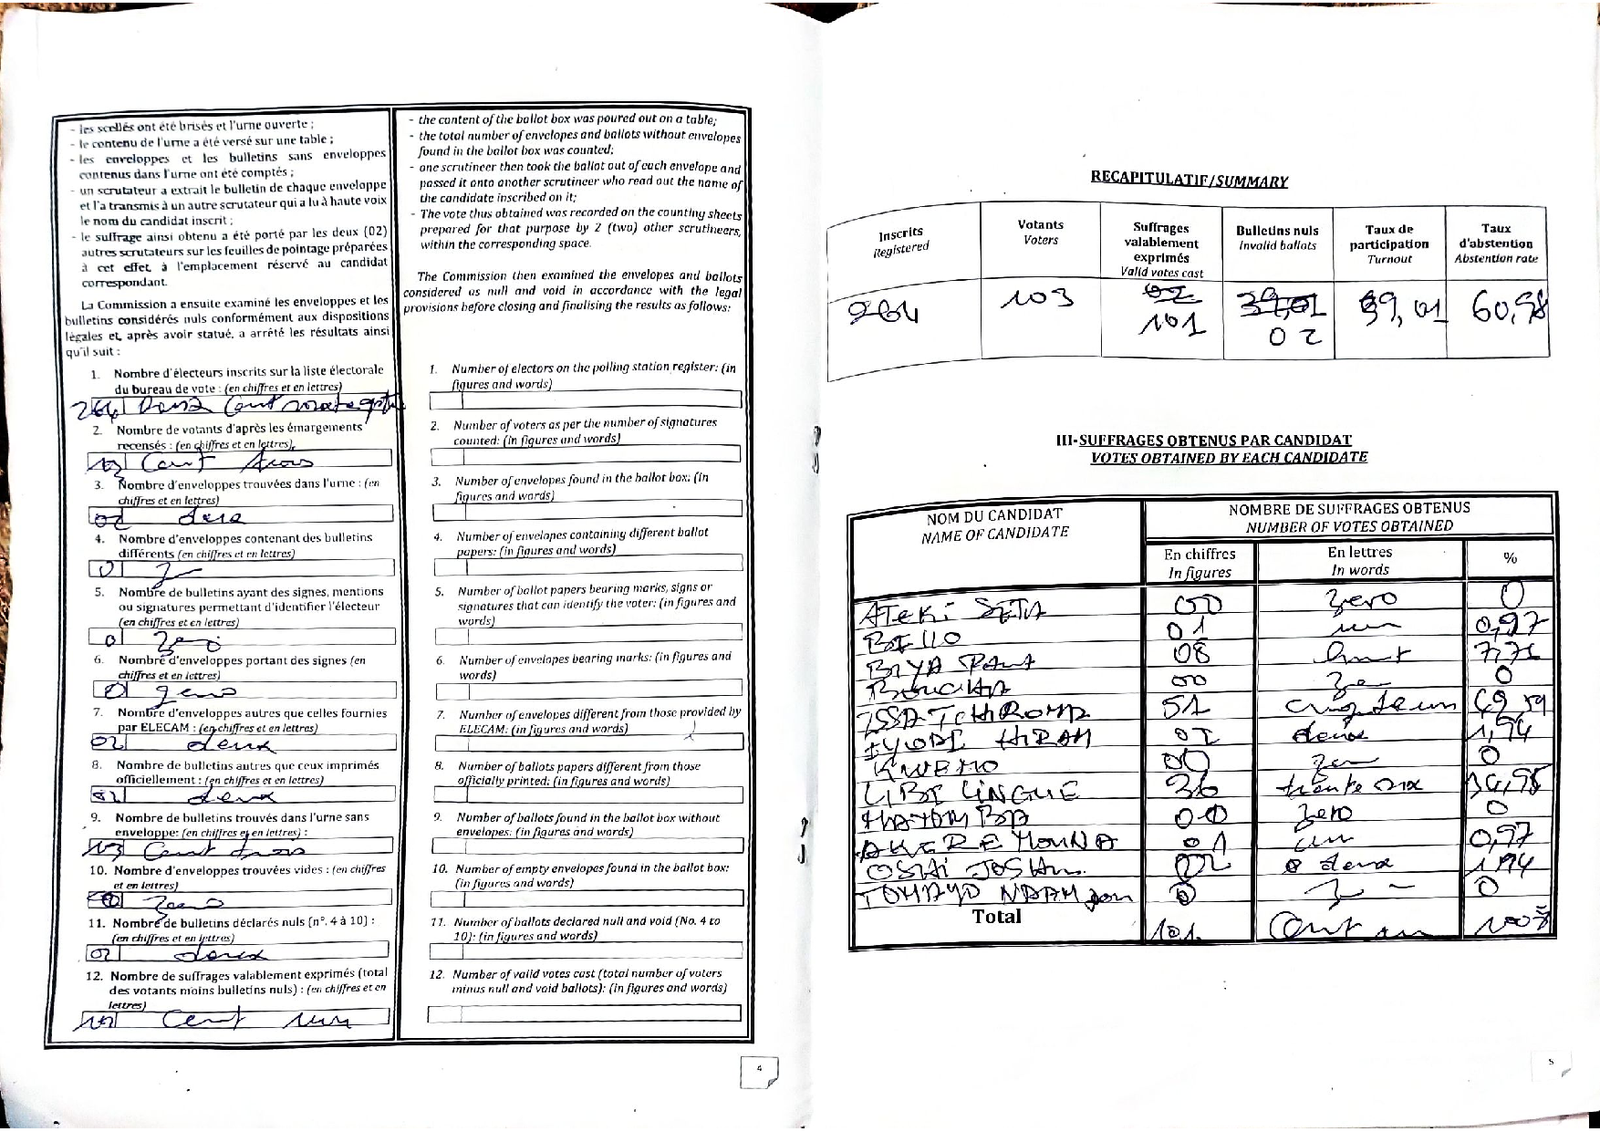 - les scellés ont été brisés et l'urne ouverte ;
- le contenu de l'urne a été versé sur une table ;
- les enveloppes et les bulletins sans enveloppes
contenus dans l'urne ont été comptés ;
- un scrutateur a extrait le bulletin de chaque enveloppe
et l'a transmis à un autre scrutateur qui a lu à haute voix
le nom du candidat inscrit ;
- le suffrage ainsi obtenu a été porté par les deux (02)
autres scrutateurs sur les feuilles de pointage préparées
à cet effet, à l'emplacement réservé au candidat
correspondant.
La Commission a ensuite examiné les enveloppes et les
bulletins considérés nuls conformément aux dispositions
légales et, après avoir statué, a arrêté les résultats ainsi
qu'il suit :
1. Nombre d'électeurs inscrits sur la liste électorale
du bureau de vote : (en chiffres et en lettres)
264 Deux Cent
2. Nombre de votants d'après les émargements
recensés : (en chiffres et en lettres)
103 Cent trois
3. Nombre d'enveloppes trouvées dans l'urne : (en
chiffres et en lettres)
02 deux
4. Nombre d'enveloppes contenant des bulletins
différents (en chiffres et en lettres)
0
5. Nombre de bulletins ayant des signes, mentions
ou signatures permettant d'identifier l'électeur
(en chiffres et en lettres)
0 zero
6. Nombre d'enveloppes portant des signes (en
chiffres et en lettres)
0 zero
7. Nombre d'enveloppes autres que celles fournies
par ELECAM : (en chiffres et en lettres)
02 deux
8. Nombre de bulletins autres que ceux imprimés
officiellement : (en chiffres et en lettres)
02 deux
9. Nombre de bulletins trouvés dans l'urne sans
enveloppe: (en chiffres et en lettres) :
103 Cent trois
10. Nombre d'enveloppes trouvées vides : (en chiffres
et en lettres)
zero
11. Nombre de bulletins déclarés nuls (n°. 4 à 10) :
(en chiffres et en lettres)
02 deux
12. Nombre de suffrages valablement exprimés (total
des votants moins bulletins nuls) : (en chiffres et en
lettres)
101 Cent un
- the content of the ballot box was poured out on a table;
- the total number of envelopes and ballots without envelopes
found in the ballot box was counted;
- one scrutineer then took the ballot out of each envelope and
passed it onto another scrutineer who read out the name of
the candidate inscribed on it;
- The vote thus obtained was recorded on the counting sheets
prepared for that purpose by 2 (two) other scrutineers,
within the corresponding space.
The Commission then examined the envelopes and ballots
considered as null and void in accordance with the legal
provisions before closing and finalising the results as follows:
1. Number of electors on the polling station register: (in
figures and words)
2. Number of voters as per the number of signatures
counted: (in figures and words)
3. Number of envelopes found in the ballot box: (in
figures and words)
4. Number of envelopes containing different ballot
papers: (in figures and words)
5. Number of ballot papers bearing marks, signs or
signatures that can identify the voter: (in figures and
words)
6. Number of envelopes bearing marks: (in figures and
words)
7. Number of envelopes different from those provided by
ELECAM: (in figures and words)
8. Number of ballots papers different from those
officially printed: (in figures and words)
9. Number of ballots found in the ballot box without
envelopes: (in figures and words)
10. Number of empty envelopes found in the ballot box:
(in figures and words)
11. Number of ballots declared null and void (No. 4 to
10): (in figures and words)
12. Number of valid votes cast (total number of voters
minus null and void ballots): (in figures and words)
4
RECAPITULATIF/SUMMARY
Inscrits Registered
Votants Voters
Suffrages valablement exprimés Valid votes cast
Bulletins nuls Invalid ballots
Taux de participation Turnout
Taux d'abstention Abstention rate
264 103 02 39,01 39,01 60,98
101 02
III-SUFFRAGES OBTENUS PAR CANDIDAT
VOTES OBTAINED BY EACH CANDIDATE
NOM DU CANDIDAT NOMBRE DE SUFFRAGES OBTENUS
NAME OF CANDIDATE NUMBER OF VOTES OBTAINED
En chiffres En lettres %
In figures In words
ATEKI SETA 00 zero 0
BELLO 01 un 0,97
BIYA Paul 08 huit 7,76
BOUGHA 00 0
ISSA TCHIROMA 51 49,59
IYODI HIRAM 02 deux 1,94
KWEMO 00 0
LIBI LINGUE 36 trente six 34,95
MATOM BA 00 zero 0
AKERE MOUNA 01 un 0,97
OSHI JOSHUA 02 deux 1,94
TOMAÏNO NDAM 0 0
Total 101 Cent un 100%
5